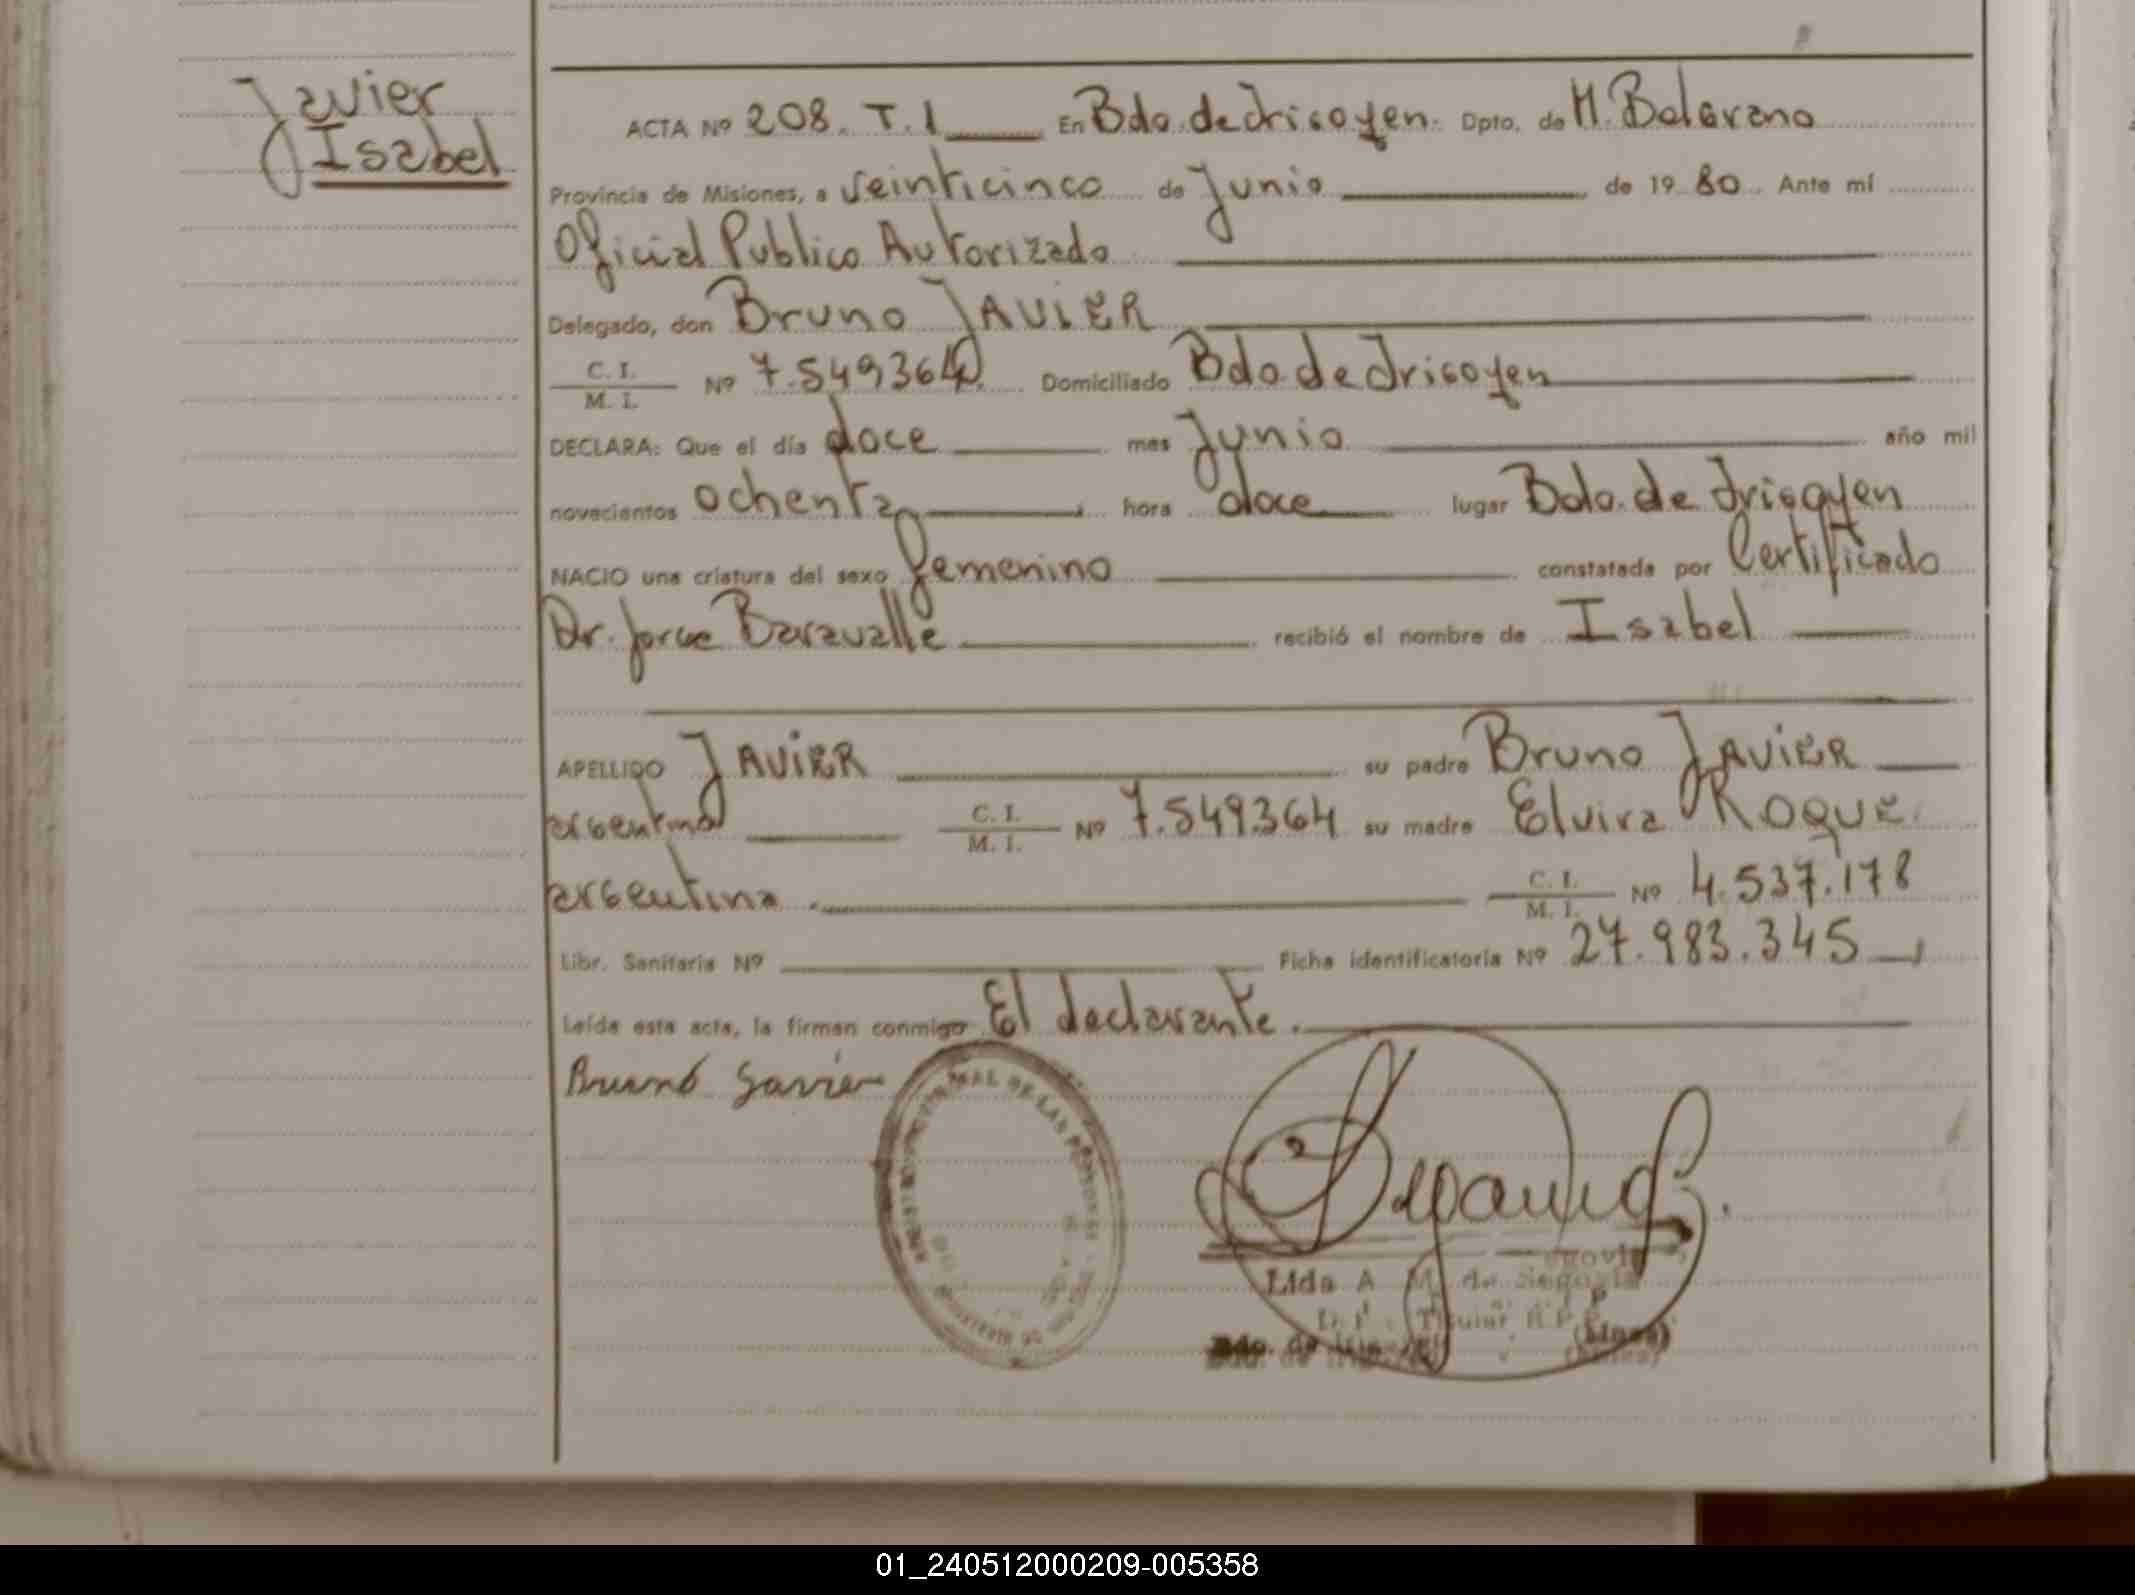 Javier
Isabel
ACTA Nº 208. T. I En Bdo. de Irigoyen. Dpto. de M. Belgrano
Provincia de Misiones, a veinticinco de Junio de 1980. Ante mí
Oficial Publico Autorizado
Delegado, don Bruno JAVIER
C. I. / M. I. Nº 7.549364 Domiciliado Bdo. de Irigoyen
DECLARA: Que el día doce mes Junio año mil
novecientos ochenta hora doce lugar Bdo. de Irigoyen
NACIO una criatura del sexo femenino constatada por Certificado
Dr. Jorge Baravalle recibió el nombre de Isabel
APELLIDO JAVIER su padre Bruno JAVIER
argentino C. I. / M. I. Nº 7.549.364 su madre Elvira ROQUE
argentina C. I. / M. I. Nº 4.537.178
Libr. Sanitaria Nº Ficha identificatoria Nº 27.983.345
Leída esta acta, la firman conmigo El declarante.
Bruno Javier
DE LAS PERSONAS
Lida A M. de Segovia
Titular R.P.P.
Bdo. de Irigoyen (Mnes)
01_240512000209-005358